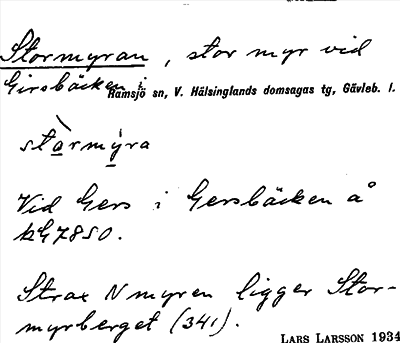 Stormyran, stor myr vid
Girsbäcken i
Ramsjö sn, V. Hälsinglands domsagas tg, Gävleb. l.
stòrmýra
Vid Gers i Gersbäcken å
kG7850.
Strax N myren ligger Stor-
myrberget (341).
LARS LARSSON 1934